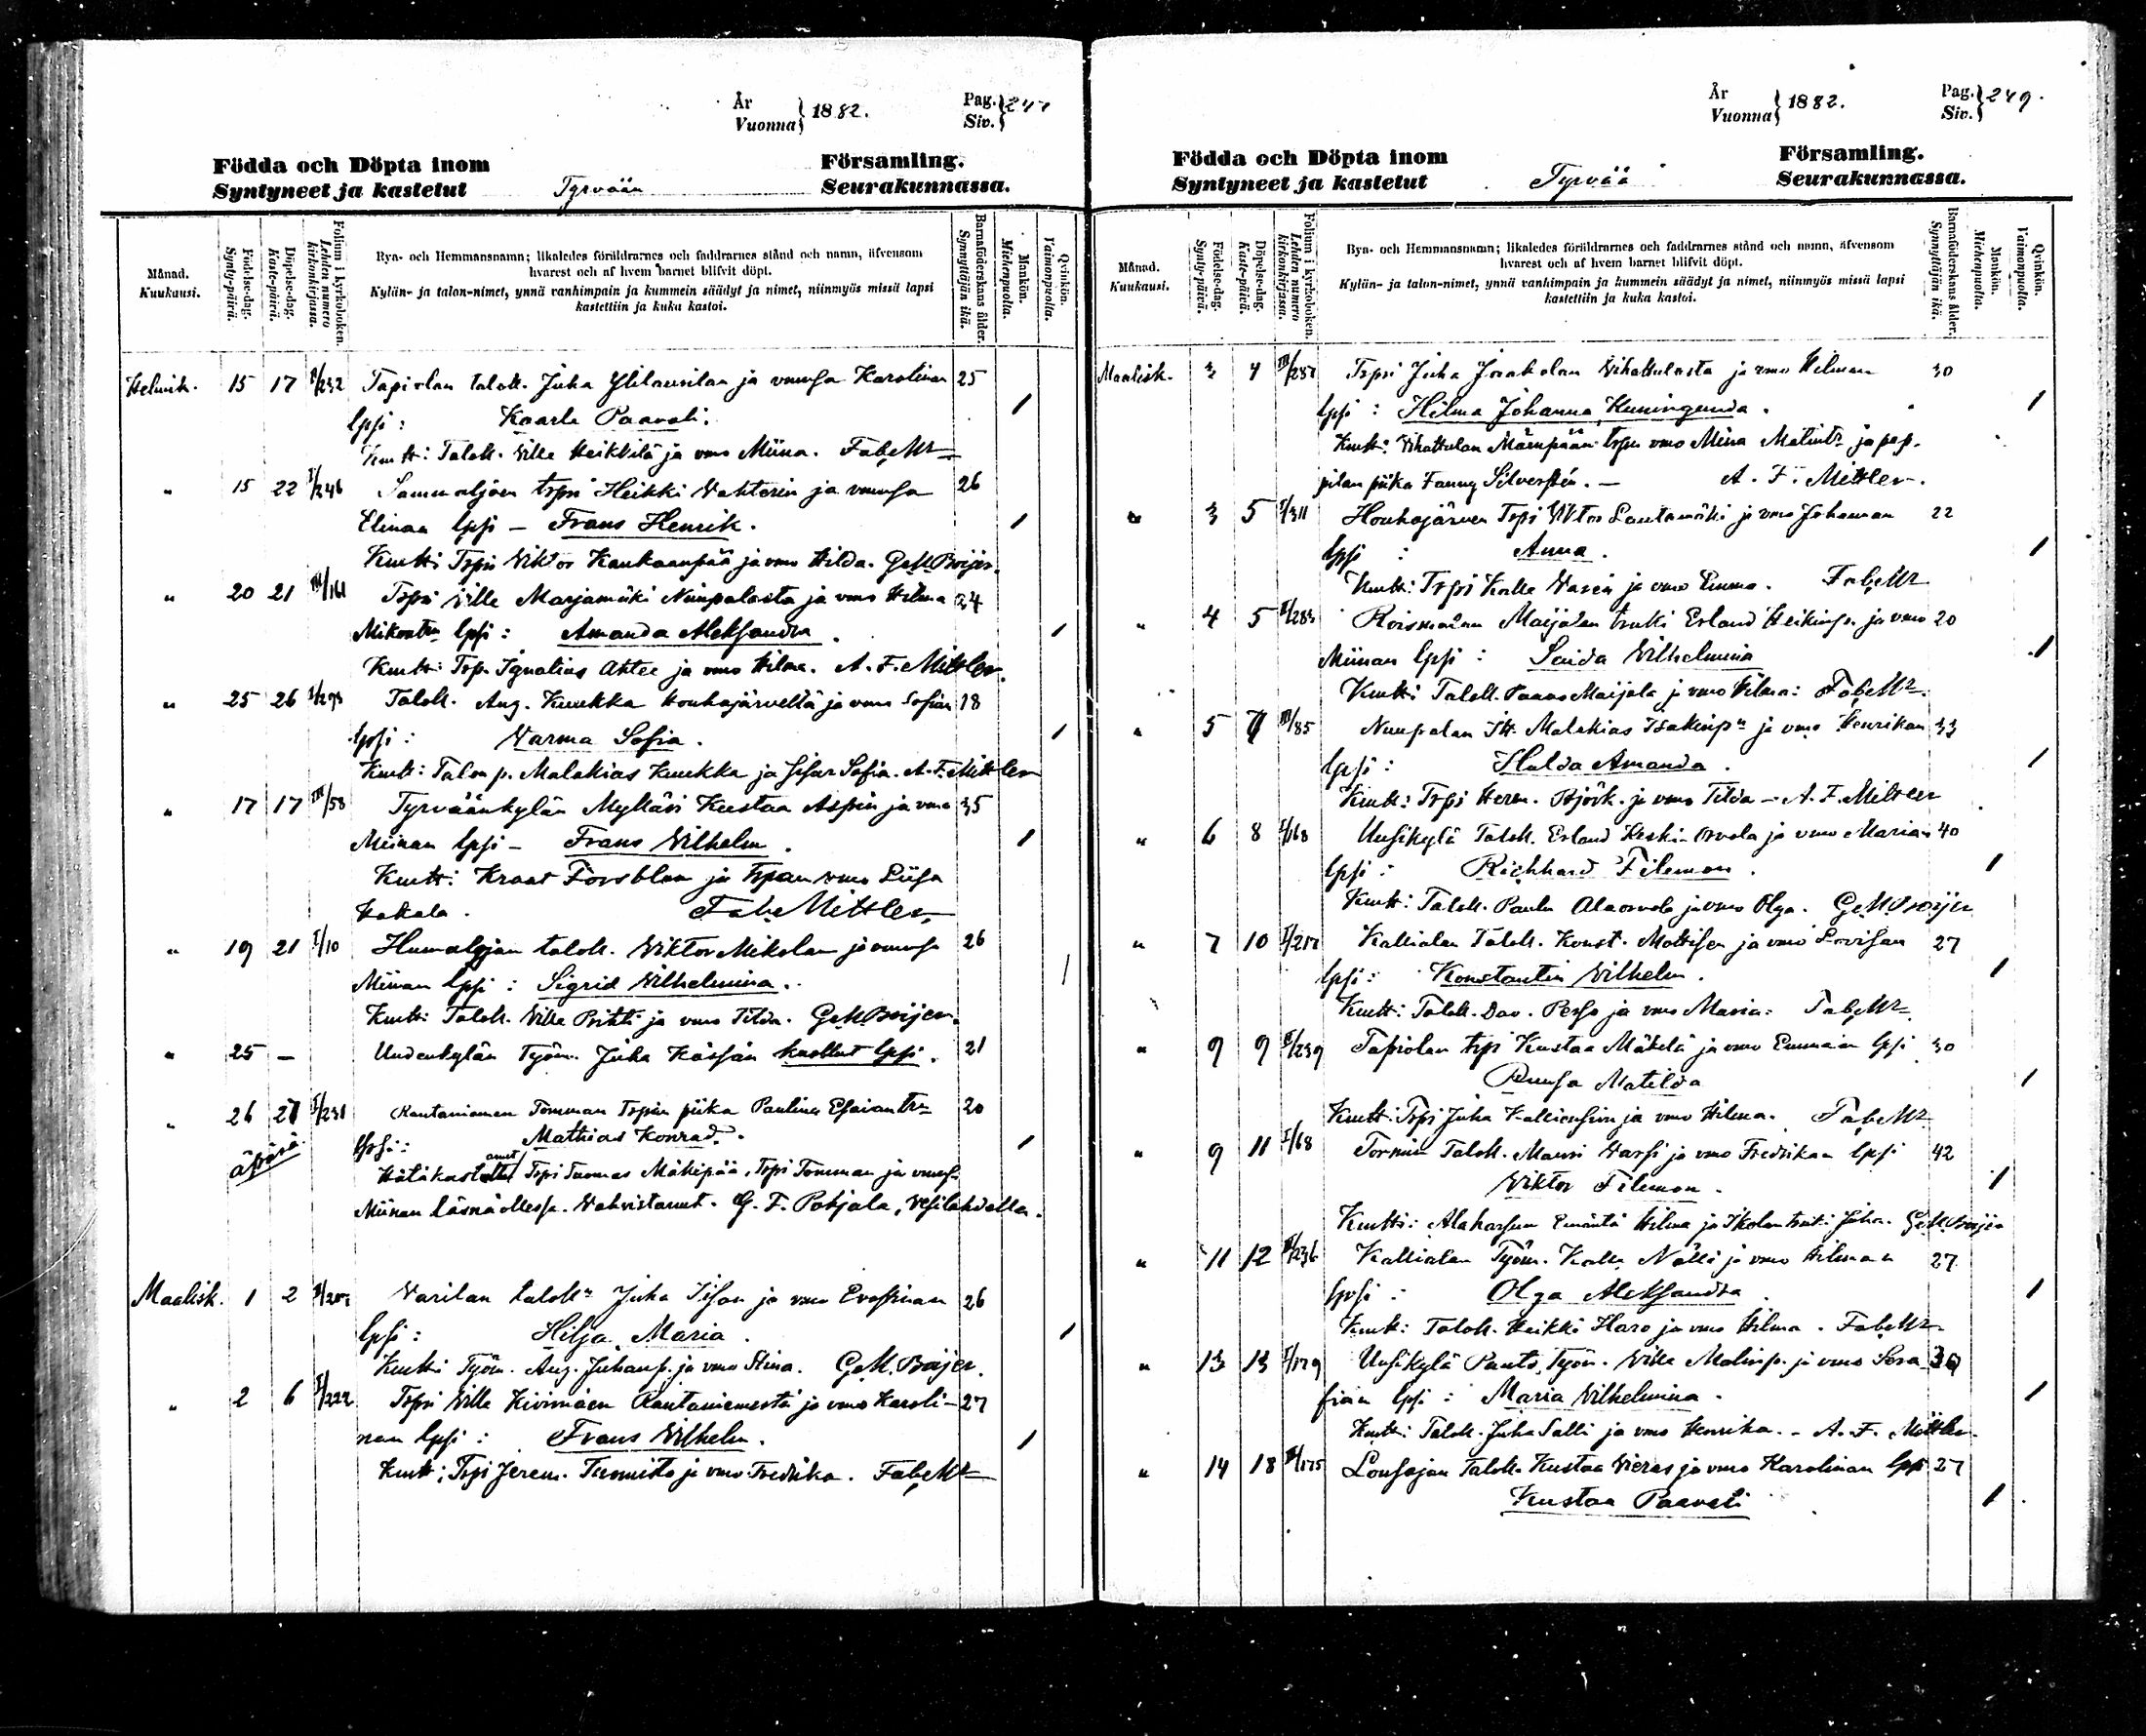 År
Vuonna} 1882.
Pag.
Siv.}
Födda och Döpta inom
Syntyneet ja kastetut Tyrvään
Församling.
Seurakunnassa.
Månad.
Kuukausi.
Födelse-dag.
Synty-päivä.
Döpelse-dag.
Kaste-päivä.
Folium i kyrkoboken.
Lehden numero kirkonkirjassa.
Bya- och Hemmansnamn; likaledes föräldrarnes och faddrarnes stånd och namn, äfvensom
hvarest och af hvem barnet blifvit döpt.
Kylän- ja talon-nimet, ynnä vanhimpain ja kummein säädyt ja nimet, niinmyös missä lapsi
kastettiin ja kuka kastoi.
Barnaföderskans ålder.
Synnyttäjän ikä.
Mankön.
Miehenpuolta.
Qvinkön.
Vaimonpuolta.
Helmik. 15 17 Tapiolan talok. Juha Ylilausilan ja vmonsa Karolinan 25
lpsi: Kaarle Paavali. /
Kmtt: Talok. Wille Heikkilä ja vmo Miina. FabeMr
" 15 22 I/246 Sammaljoen trpri Heikki Wahterin ja vmonsa 26
Elinan lpsi – Frans Henrik. /
Kmtti Trpri Viktor Kankaanpää ja vmo Hilda. GeMBoijer.
" 20 21 III/161 Trpri Wille Marjamäki Nuupalasta ja vmo Hilma 24
Mikontr lpsi: Amanda Aleksandra. /
Kmtt: Trp. Ignatius Ahlee ja vmo Hilma. A. F. Mittler.
" 25 26 Talok. Aug. Kuukka Houhajärveltä ja vmo Sofian 18
lpsi: Varma Sofia. /
Kmtt: Talon p. Malakias Kuukka ja Sofia. A. F. Mittler
" 17 17 III/58 Tyrväänkylän Mylläri Kustaa Aspin ja vmo 35
Miinan lpsi – Frans Wilhelm. /
Kmtt: Forsblom ja vmo Liisa
Kakala. FabeMittler
" 19 21 I/10 Humalojan talok. Wiktor Mikolan ja vmonsa 26
Miinan lpsi: Sigrid Wilhelmina. /
Kmtt: Talok. Wille Prihti ja vmo Tilda. GeMBoijer.
" 25 – Uudenkylän Työm. Juha Kässän kuollut lpsi. 21
" 26 27 I/231 Rantaniemen Tomman Trprin piika Paulina Esaiantr 20
äpärä lpsi: Mathias Konrad. /
Hätäkast. Trpri Tuomas Mäkipää, Trpri Tomman ja vmonsa
Miinan läsnä ollessa. Vahvistanut G. F. Pohjala, Vesilahdella.
Maalisk. 1 2 Varilan talok. Juha Iisan ja vmo Evastinan 26
lpsi: Hilja Maria. /
Kmtti Työm. Aug. Juhanp. ja vmo Stina. GeM. Boijer.
" 2 6 I/222 Trpri Wille Kivimäen Rantaniemestä ja vmo Karoli- 27
nan lpsi: Frans Wilhelm. /
Kmtt: Trpri Jerem. Tunnisto ja vmo Fredrika. FabeMr
År
Vuonna} 1882.
Pag.
Siv.} 249.
Födda och Döpta inom
Syntyneet ja kastetut Tyrvää
Församling.
Seurakunnassa.
Månad.
Kuukausi.
Födelse-dag.
Synty-päivä.
Döpelse-dag.
Kaste-päivä.
Folium i kyrkoboken.
Lehden numero kirkonkirjassa.
Bya- och Hemmansnamn; likaledes föräldrarnes och faddrarnes stånd och namn, äfvensom
hvarest och af hvem barnet blifvit döpt.
Kylän- ja talon-nimet, ynnä vanhimpain ja kummein säädyt ja nimet, niinmyös missä lapsi
kastettiin ja kuka kastoi.
Barnaföderskans ålder.
Synnyttäjän ikä.
Mankön.
Miehenpuolta.
Qvinkön.
Vaimonpuolta.
Maalisk. 3 4 Trpri Juha Jaakolan Vihattulasta ja vmo Hilman 30
lpsi: Hilma Johanna Kuningunda. /
Kmtt: Vihattulan Mäenpään trpn vmo Miina Matintr ja pap-
pilan piika Fanny Silverstén. – A. F. Mittler.
" 3 5 I/311 Houhajärven Trpri Wktor Lautamäki ja vmo Johannan 22
lpsi: Anna. /
Kmtt: Trpri Kalle Varein ja vmo Emma. FabeMr
" 4 5 II/283 Roismalan Maijalan trenki Erland Heikinp. ja vmo 20
Miinan lpsi: Senida Wilhelmina /
Kmtt: Talok. Paavo Maijala ja vmo Hilma: FabeMr.
" 5 7 III/85 Nuupalan Malakias Isakinp. ja vmo Henrikan 33
lpsi: Hulda Amanda. /
Kmtt: Trpri Herm. Björk. ja vmo Tilda – A. F. Mittler
" 6 8 I/168 Uusikylä Talok. Erland Keski-Orvola ja vmo Marian 40
lpsi: Richhard Filemon. /
Kmtt: Talok. Paulu Alaorvola ja vmo Olga. GeMBoijer
" 7 10 I/217 Kallialan Talok. Konst. Mattisen ja vmo Lovisan 27
lpsi: Konstantin Wilhelm. /
Kmtt: Talok. Dav. Pesso ja vmo Maria: FabeMr
" 9 9 I/239 Tapiolan trpri Kustaa Mäkelä ja vmo Emman lpsi 30
Ruusa Matilda /
Kmtt: Trpri Juha ja vmo Hilma. FabeMr
" 9 11 I/68 Tormin Talok. Mauri Varsi ja vmo Fredrikan lpsi 42
Viktor Filemon. /
Kmtti: Alaharsun Emäntä Hilma ja Ikolan trenki Juha. GeMBoijer
" 11 12 II/236 Kallialan Työm. Kalle Nälli ja vmo Hilman 27
lpsi: Olga Aleksandra. /
Kmtt: Talok. Heikki Haro ja vmo Hilma. FabeMr
" 13 13 I/179 Uusikylä Punto, Työm. Wille Malinp. ja vmo Sera 39
fian lpsi: Maria Wilhelmina. /
Kmtti: Talok. Juha Salli ja vmo Henrika. – A. F. Mittler.
" 14 18 Lousajan Talok. Kustaa Vieras ja vmo Karolinan lpsi 27
Kustaa Paavali /